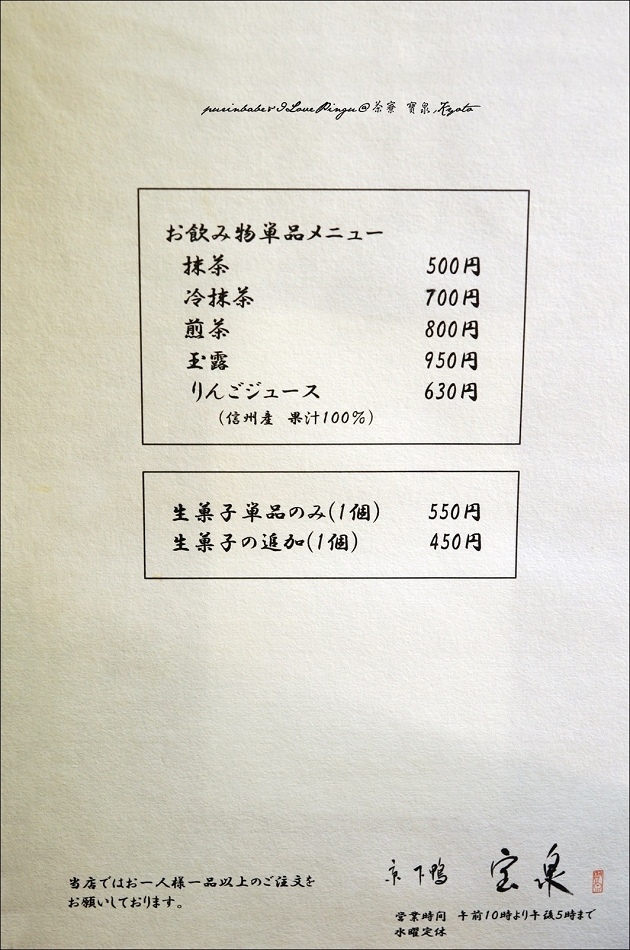 purinbabe & I Love Pingu@茶寮 寶泉,Kyoto
お飲み物単品メニュー
抹茶 500円
冷抹茶 700円
煎茶 800円
玉露 950円
りんごジュース 630円
(信州産 果汁100%)
生菓子単品のみ(1個) 550円
生菓子の追加(1個) 450円
当店ではお一人様一品以上のご注文を
お願いしております。
京 下鴨 宝泉
営業時間 午前10時より午後5時まで
水曜定休